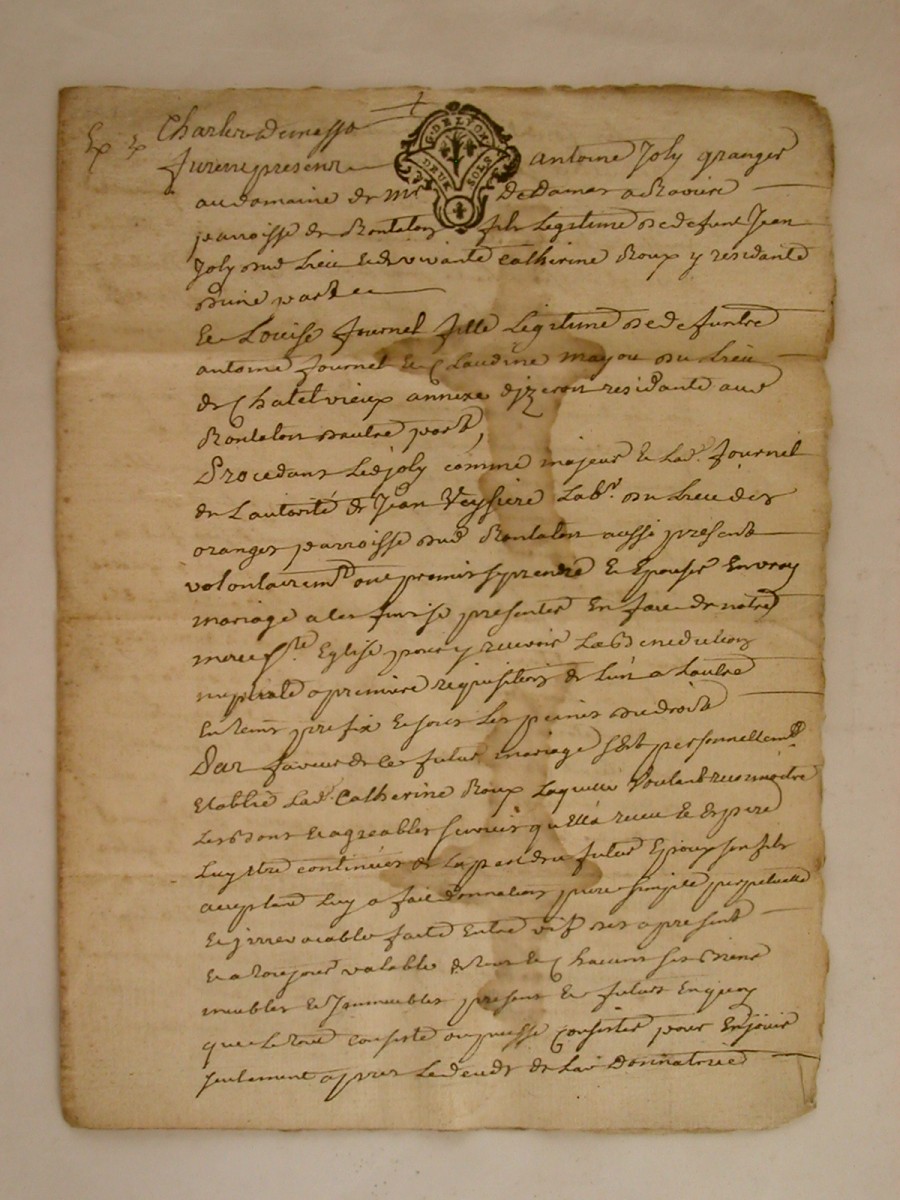 Charles Demesso
G. DE LYON
DEUX SOLS
furent presents antoine Joly granger
au domaine de Mr De Damas a Raviere
parroisse de Rontalon fils Legitime de defunt Jean
Joly dud Lieu et de vivante Catherine Roux y residante
d'une part et
et Louise fournel fille Legitime de defuntz
antoine fournel et Claudine mayou du Lieu
de Chatelvieux annexe dizeron residante aud
Rontalon d'autre part,
Procedans Led joly comme majeur et Lad. fournel
de L'autorité de Jean Veyssiere Labr. du Lieu des
oranges parroisse dud Rontalon aussi present
volontairemt ont promis se prendre et Epouser En vray
mariage a ces fins se presenter En face de notre
mere ste Eglise pour y recevoir La Benediction
nuptiale a premiere requisition de L'un a L'autre
En tems prefix et sous Les peines du droit
Par faveur de ce futur mariage s'est personnellemt
Etablie Lad. Catherine Roux Laquelle voulant reconnoitre
Les bons et agreables services qu'elle a receu et Espere
Luy Etre continués de La part du futur Epoux son fils
acceptant Luy a fait donnation pure simple perpetuelle
et irrevocable faite Entre vifs des a present
et a toujours valable de tous et Chacuns ses Biens
meubles et Immeubles present et futurs En quoy
que Le tout consiste ou puisse Consister pour En jouir
seulement apres Le deceds de Lad Donnatrice